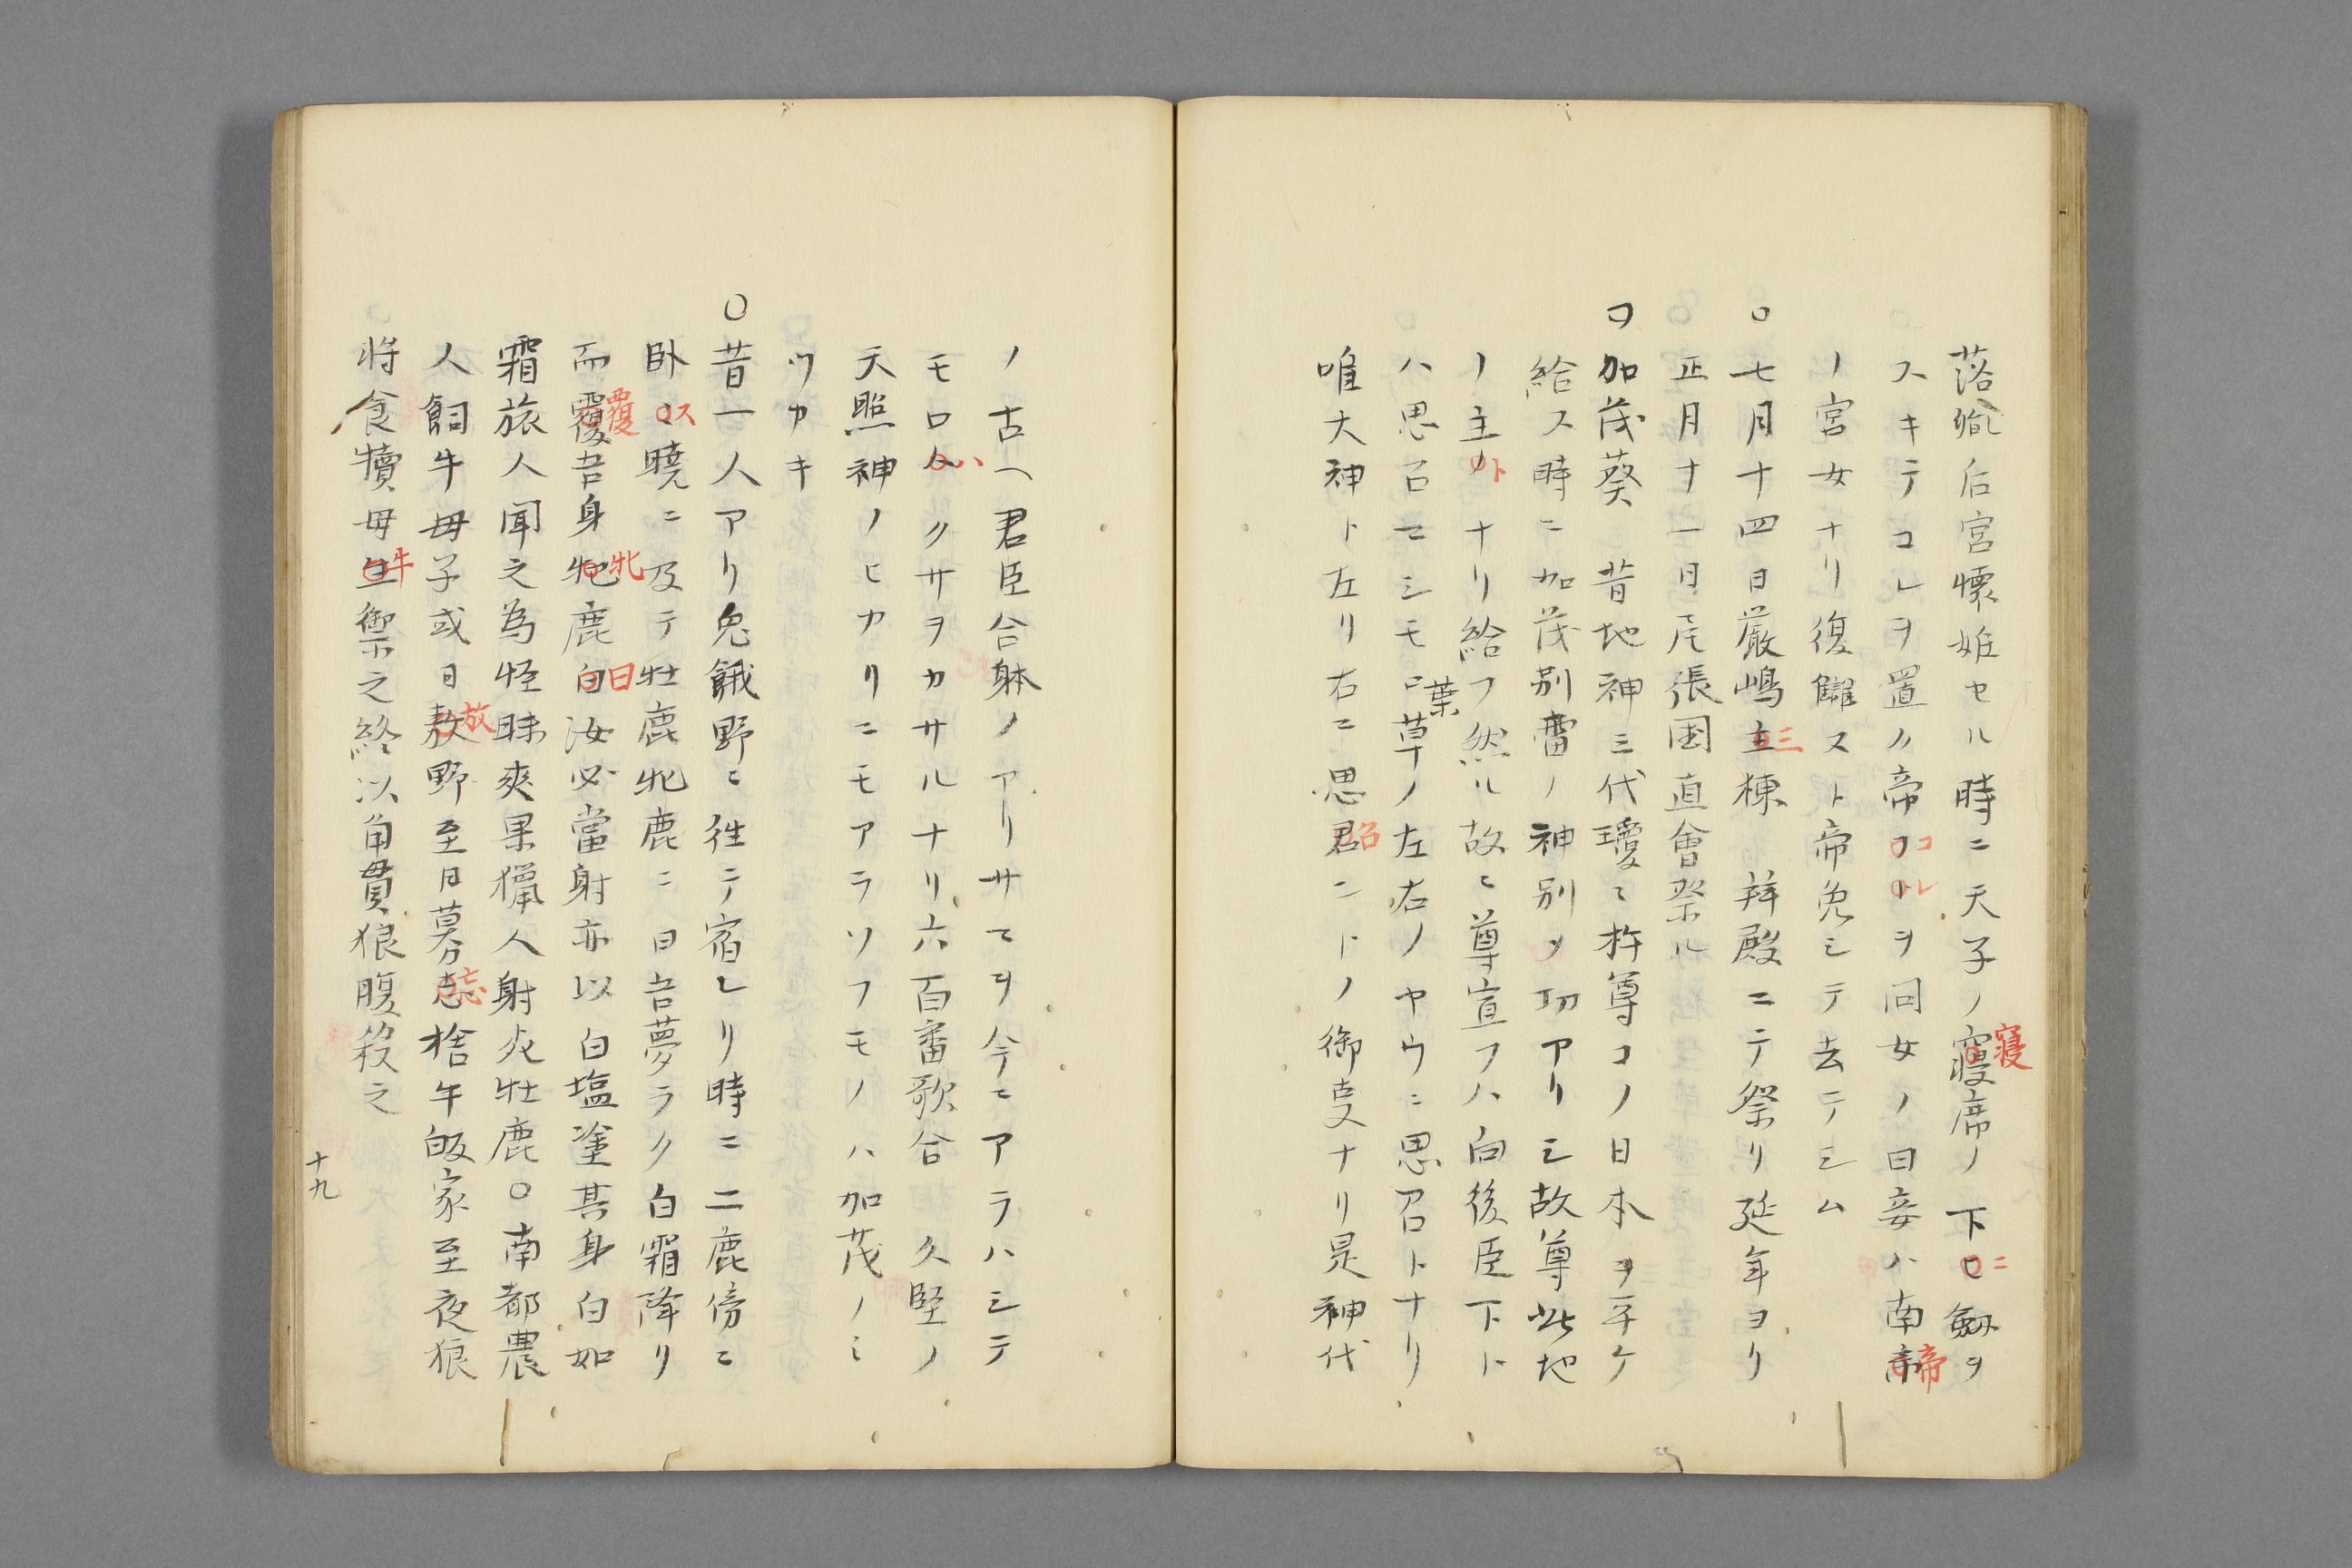 落飾后宮懐姙セル時ニ天子ノ寝席ノ下ニ劔ヲ
スキテコレヲ置ク帝コレヲ問女ノ曰妾ハ南帝
ノ宮女ナリ復讎スト帝免シテ去テシム
○七月十四日厳嶋三棟 拜殿ニテ祭リ延年ヨリ
正月十一日尾張国直會祭ル
○加茂葵 昔地神三代瓊々杵尊コノ日本ヲ平ケ
給ス時ニ加茂別雷ノ神別メ切アリシ故尊此地
ノ主トナリ給フ然ル故ニ尊宣フハ向後臣下ト
ハ思召マシモニ葉草ノ左右ノヤウニ思召トナリ
唯大神ト左リ右ニ思召ントノ御支ナリ是神代
ノ古ヘ君臣合躰ノアリサマヲ今ニアラハシテ
モロハクサヲカサルナリ六百番歌合 久堅ノ
天照神ノヒカリニモアラソフモノハ加茂ノミ
ツカキ
○昔一人アリ兔餓野ニ往テ宿レリ時ニ二鹿傍ニ
臥ス曉ニ及テ牡鹿牝鹿ニ曰吾夢ラク白霜降リ
而覆吾身牝鹿曰汝必當射亦以白塩塗其身白如
霜旅人聞之為怪昧爽果獵人射死牡鹿○南都農
人飼牛母子或日放野至日暮分忘捨牛皈家至夜狼
將食犢母牛禦之終以角貫狼腹殺之
十九
寝
ニ
コ
レ
帝
三
ト
召
ハ
ス
覆
牝
曰
放
忘
牛